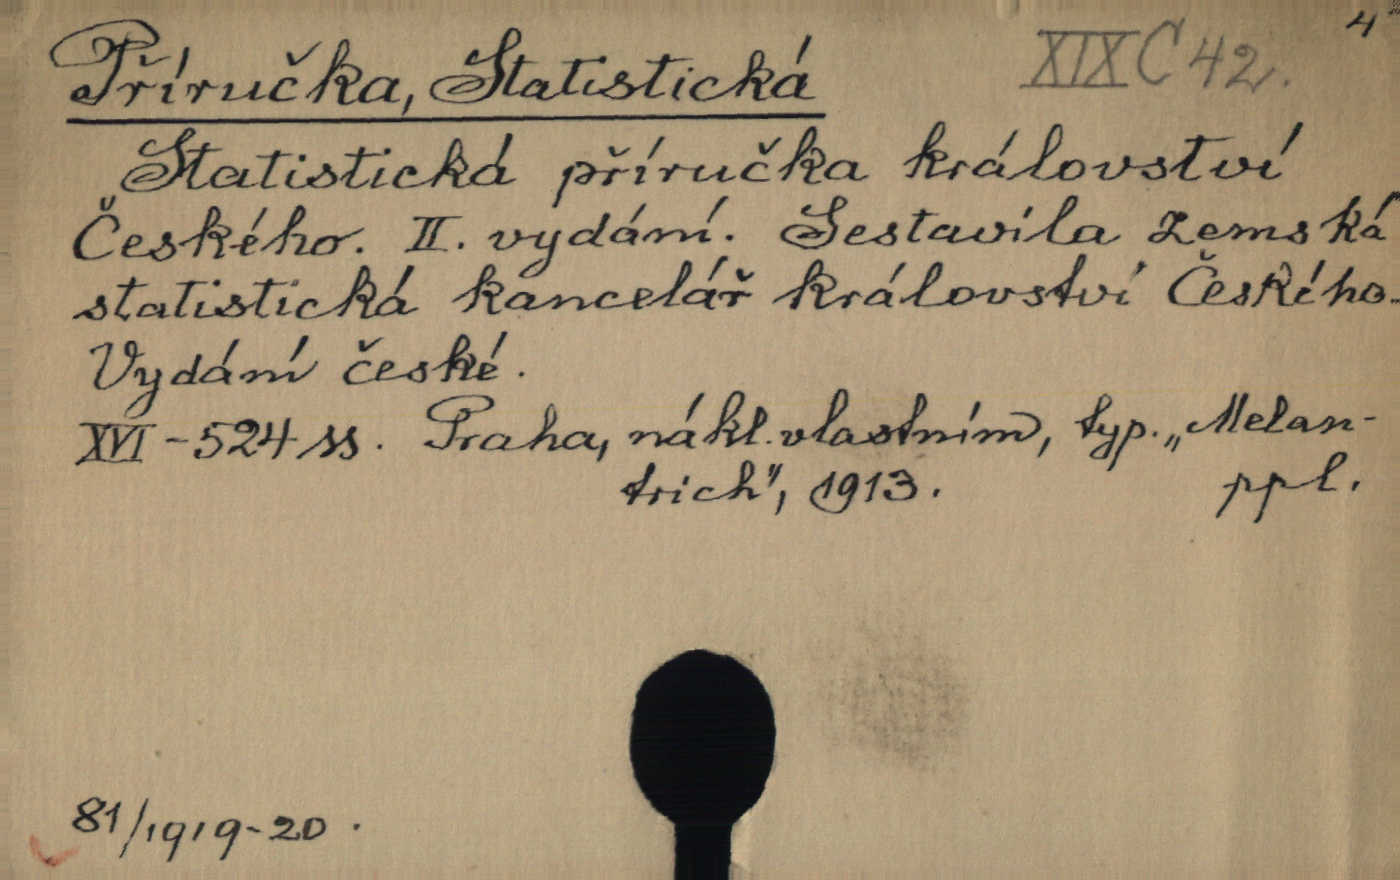 4
XIX C 42.
Příručka, Statistická
Statistická příručka království
Českého. II. vydání. Sestavila zemská
statistická kancelář království Českého.
Vydání české.
XVI - 524 ss. Praha, nákl. vlastním, typ. „Melan-
trich", 1913. ppl.
81/1919-20.